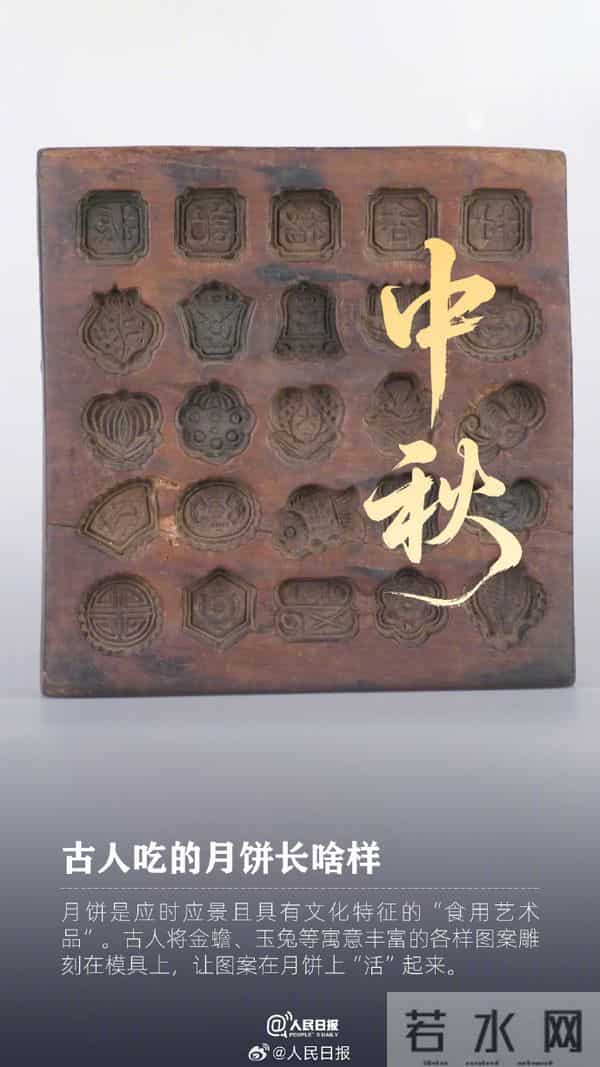 中秋
古人吃的月饼长啥样
月饼是应时应景且具有文化特征的“食用艺术
品”。古人将金蟾、玉兔等寓意丰富的各样图案雕
刻在模具上，让图案在月饼上“活”起来。
@人民日报
PEOPLE'S DAILY
@人民日报
若水网